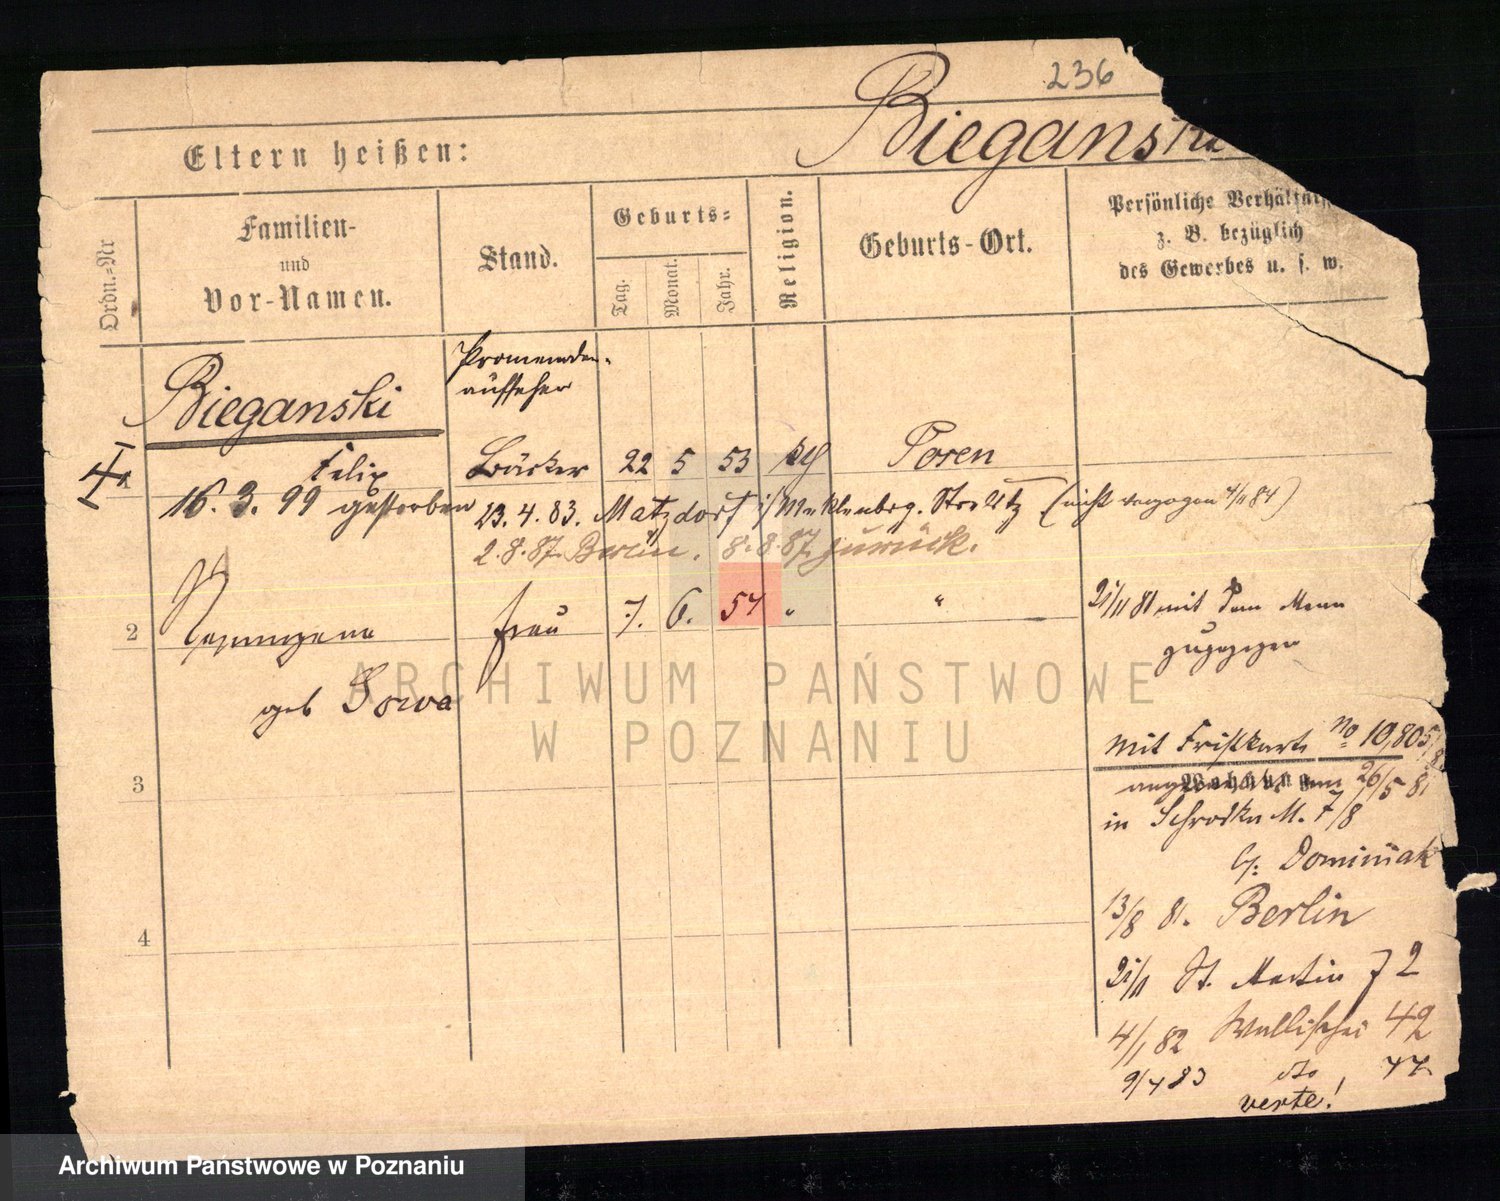 236
Bieganski
Eltern heißen:
Ordn.=Nr
Familien-
und
Vor-Namen.
Stand.
Geburts=
Tag.
Monat.
Jahr.
Religion.
Geburts-Ort.
Persönliche Verhältniss
z. B. bezüglich
des Gewerbes u. s. w.
Bieganski
Promenaden-
aufseher
1 Felix Bäcker 22 5 53 kth Posen
16. 3. 99 gestorben 23. 4. 83. Matzdorf i/ Meklenbrg. Strelitz (nicht verzogen 4/11 84)
2. 8. 87. Berlin. 8. 8. 87. zurück.
2 Frau 7. 6. 54 " "
geb Sowa
21/11 81 mit dem Mann
zugezogen
3
4
mit Fristkarte No 10,805/8
Wohnung
26/5 81
in Schrodka M. 7/8
b/: Dominiak
13/8 81. Berlin
21/11 St. Martin 72
4/1 82 Wallischei 42
9/4 83 dto 77
verte!
ARCHIWUM PAŃSTWOWE
W POZNANIU
Archiwum Państwowe w Poznaniu